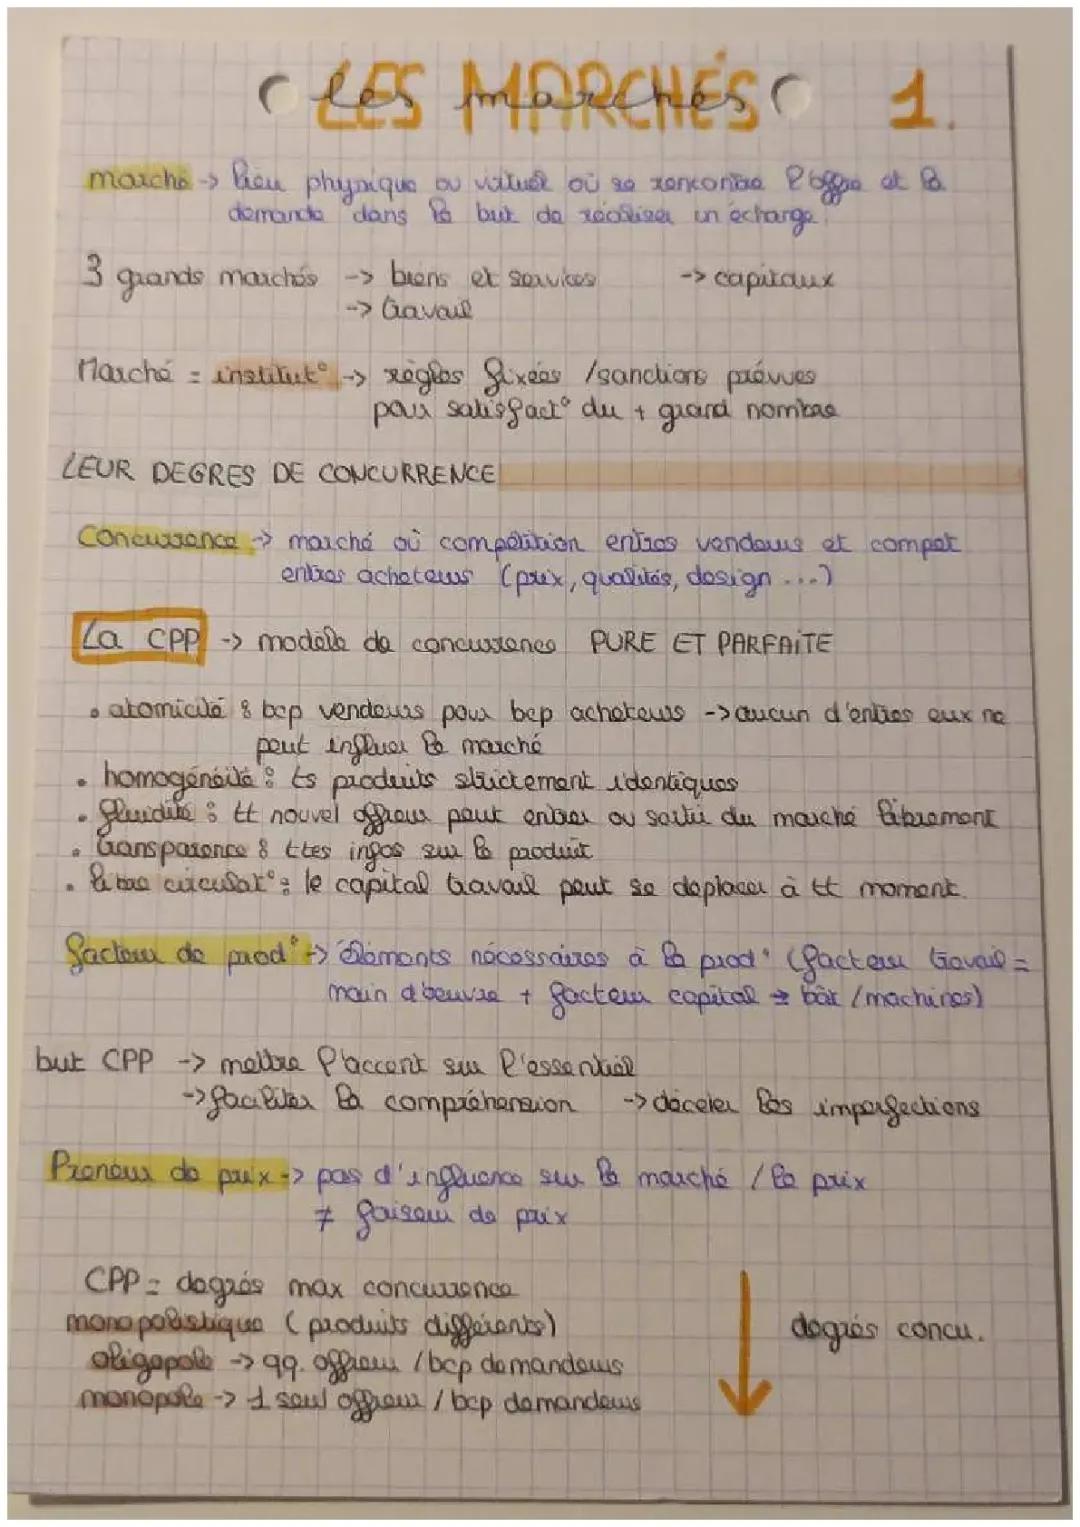 LES MARCHÉS 1.
les marchés
marché -> lieu physique ou virtuel où se rencontre l'offre et la
demande dans le but de réaliser un échange.
3 grands marchés -> biens et services -> capitaux
-> travail
Marché = institut° -> règles fixées / sanctions prévues
pour satisfact° du + grand nombre
LEUR DEGRES DE CONCURRENCE
Concurrence -> marché où compétition entres vendeurs et compet
entres acheteurs (prix, qualités, design ...)
La CPP -> modèle de concurrence PURE ET PARFAITE
• atomicité : bcp vendeurs pour bcp acheteurs -> aucun d'entres eux ne
peut influer le marché
• homogénéité : ts produits strictement identiques
• fluidité : tt nouvel offreur peut entrer ou sortir du marché librement
• transparence : ttes infos sur le produit
• libre circulat° : le capital travail peut se déplacer à tt moment.
facteur de prod° -> éléments nécessaires à la prod° (facteur travail =
main d'oeuvre + facteur capital => bât / machines)
but CPP -> mettre l'accent sur l'essentiel
-> faciliter la compréhension -> déceler les imperfections
Preneur de prix -> pas d'influence sur le marché / le prix
≠ faiseur de prix
CPP = degrés max concurrence
monopolistique (produits différents) degrés concu.
oligopole -> qq. offreur / bcp demandeurs
monopole -> 1 seul offreur / bcp demandeurs